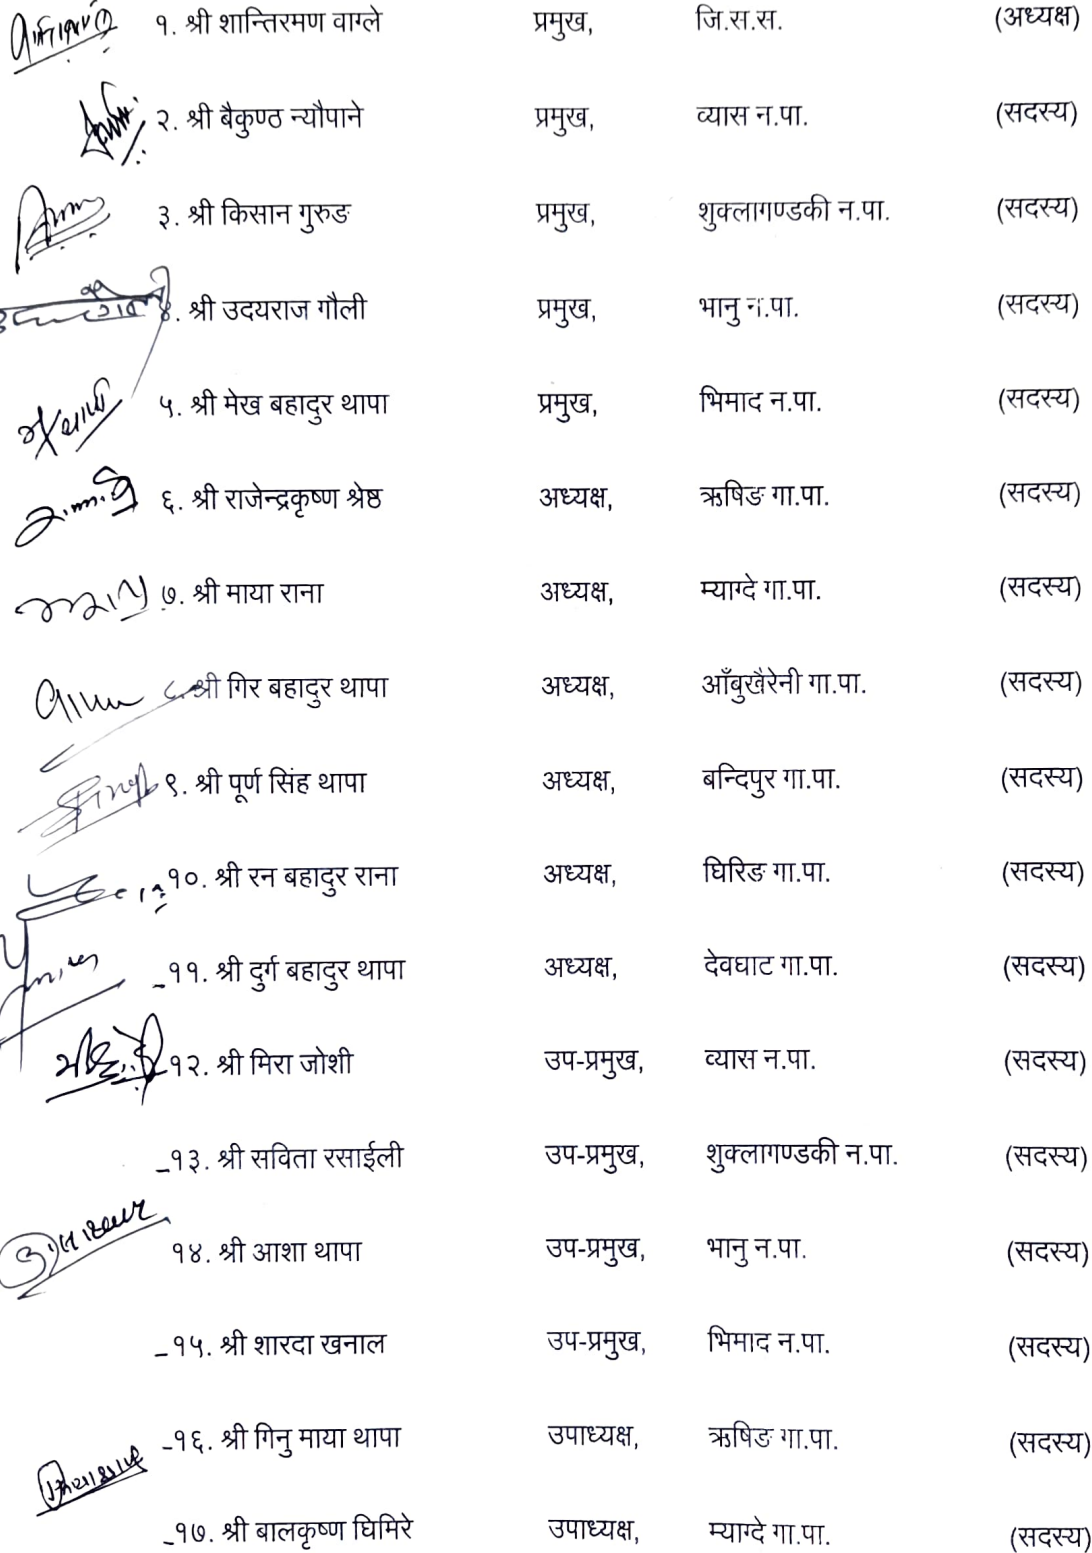 १. श्री शान्तिरमण वाग्ले प्रमुख, जि.स.स. (अध्यक्ष)
२. श्री बैकुण्ठ न्यौपाने प्रमुख, व्यास न.पा. (सदस्य)
३. श्री किसान गुरुङ प्रमुख, शुक्लागण्डकी न.पा. (सदस्य)
४. श्री उदयराज गौली प्रमुख, भानु न.पा. (सदस्य)
५. श्री मेख बहादुर थापा प्रमुख, भिमाद न.पा. (सदस्य)
६. श्री राजेन्द्रकृष्ण श्रेष्ठ अध्यक्ष, ऋषिङ गा.पा. (सदस्य)
७. श्री माया राना अध्यक्ष, म्याग्दे गा.पा. (सदस्य)
८. श्री गिर बहादुर थापा अध्यक्ष, आँबुखैरेनी गा.पा. (सदस्य)
९. श्री पूर्ण सिंह थापा अध्यक्ष, बन्दिपुर गा.पा. (सदस्य)
१०. श्री रन बहादुर राना अध्यक्ष, घिरिङ गा.पा. (सदस्य)
११. श्री दुर्ग बहादुर थापा अध्यक्ष, देवघाट गा.पा. (सदस्य)
१२. श्री मिरा जोशी उप-प्रमुख, व्यास न.पा. (सदस्य)
१३. श्री सविता रसाईली उप-प्रमुख, शुक्लागण्डकी न.पा. (सदस्य)
१४. श्री आशा थापा उप-प्रमुख, भानु न.पा. (सदस्य)
१५. श्री शारदा खनाल उप-प्रमुख, भिमाद न.पा. (सदस्य)
१६. श्री गिनु माया थापा उपाध्यक्ष, ऋषिङ गा.पा. (सदस्य)
१७. श्री बालकृष्ण घिमिरे उपाध्यक्ष, म्याग्दे गा.पा. (सदस्य)